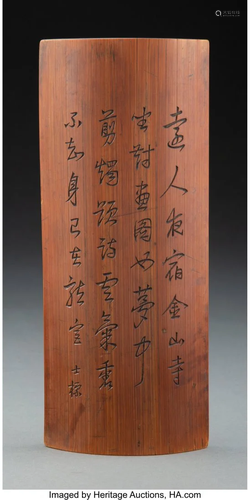 遠人夜宿金山寺
坐對畫圖如夢中
剪燭題詩雲氣裏
不知身已在龍宮 士
Imaged by Heritage Auctions, HA.com